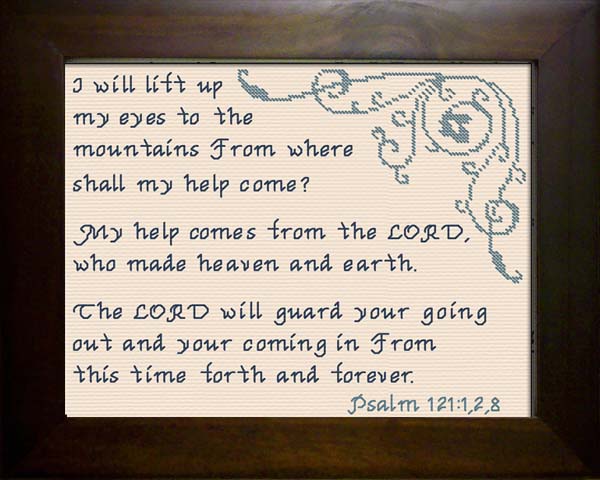 I will lift up
my eyes to the
mountains From where
shall my help come?
My help comes from the LORD,
who made heaven and earth.
The LORD will guard your going
out and your coming in From
this time forth and forever.
Psalm 121:1,2,8